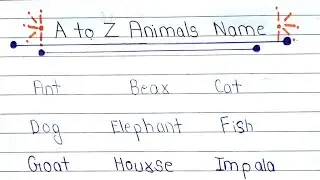 A to Z Animals Name
Ant Bear Cat
Dog Elephant Fish
Goat Hourse Impala